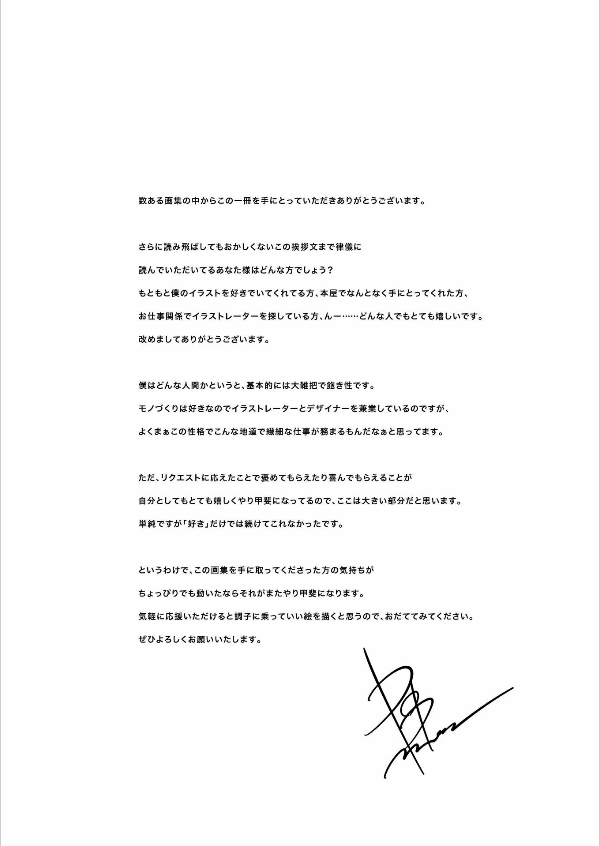 数ある画集の中からこの一冊を手にとっていただきありがとうございます。
さらに読み飛ばしてもおかしくないこの挨拶文まで律儀に
読んでいただいてるあなた様はどんな方でしょう？
もともと僕のイラストを好きでいてくれてる方、本屋でなんとなく手にとってくれた方、
お仕事関係でイラストレーターを探している方、んー……どんな人でもとても嬉しいです。
改めましてありがとうございます。
僕はどんな人間かというと、基本的には大雑把で飽き性です。
モノづくりは好きなのでイラストレーターとデザイナーを兼業しているのですが、
よくまぁこの性格でこんな地道で繊細な仕事が務まるもんだなぁと思ってます。
ただ、リクエストに応えたことで褒めてもらえたり喜んでもらえることが
自分としてもとても嬉しくやり甲斐になってるので、ここは大きい部分だと思います。
単純ですが「好き」だけでは続けてこれなかったです。
というわけで、この画集を手に取ってくださった方の気持ちが
ちょっぴりでも動いたならそれがまたやり甲斐になります。
気軽に応援いただけると調子に乗っていい絵を描くと思うので、おだててみてください。
ぜひよろしくお願いいたします。